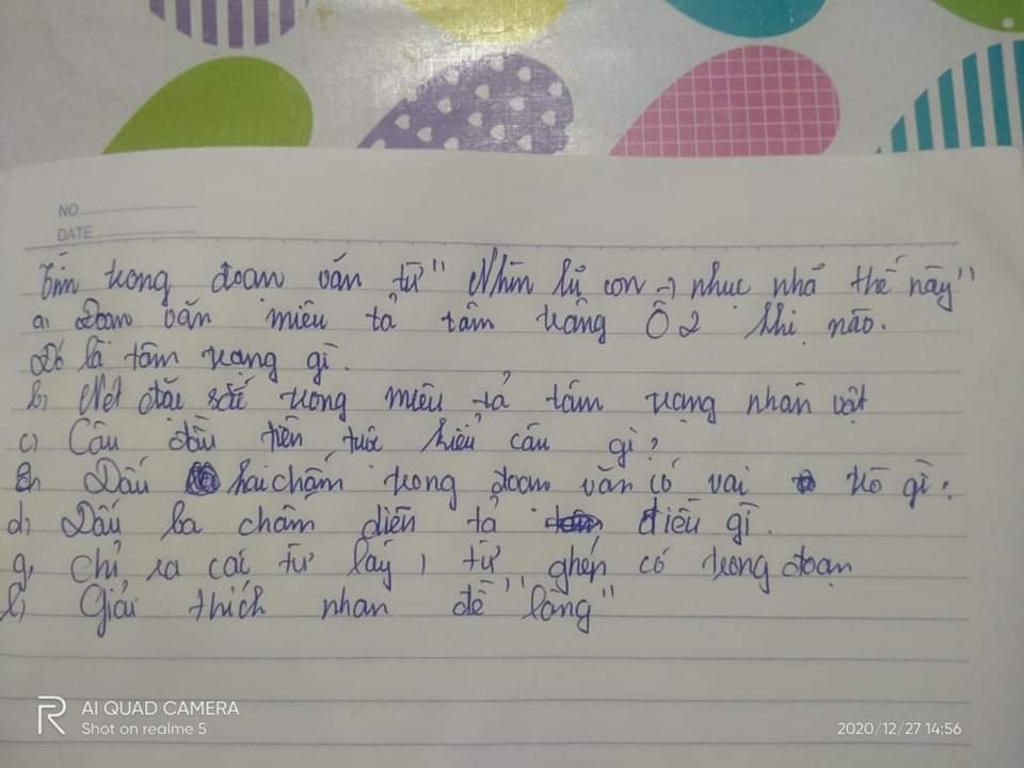 NO
DATE
trong đoạn văn từ " Nhìn lũ con → nhục nhã thế này"
a, Đoạn văn miêu tả tâm trạng Ô 2 khi nào.
Đó là tâm trạng gì.
b, Nét đặc sắc trong miêu tả tâm trạng nhân vật
c, Câu đầu tiên thuộc kiểu câu gì?
Dấu hai chấm trong đoạn văn có vai trò gì?
d, Dấu ba chấm diễn tả điều gì.
g, Chỉ ra các từ láy, từ ghép có trong đoạn
Giải thích nhan đề "làng"
R AI QUAD CAMERA
Shot on realme 5
2020/12/27 14:56